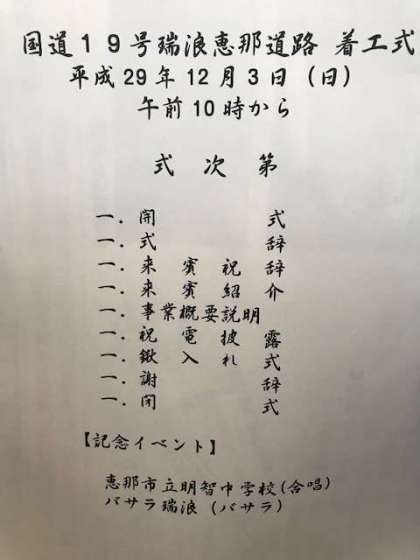 国道19号瑞浪恵那道路 着工式
平成29年12月3日（日）
午前10時から
式次第
一．開式
一．式辞
一．来賓祝辞
一．来賓紹介
一．事業概要説明
一．祝電披露
一．鍬入れ式
一．謝辞
一．閉式
【記念イベント】
恵那市立明智中学校（合唱）
バサラ瑞浪（バサラ）